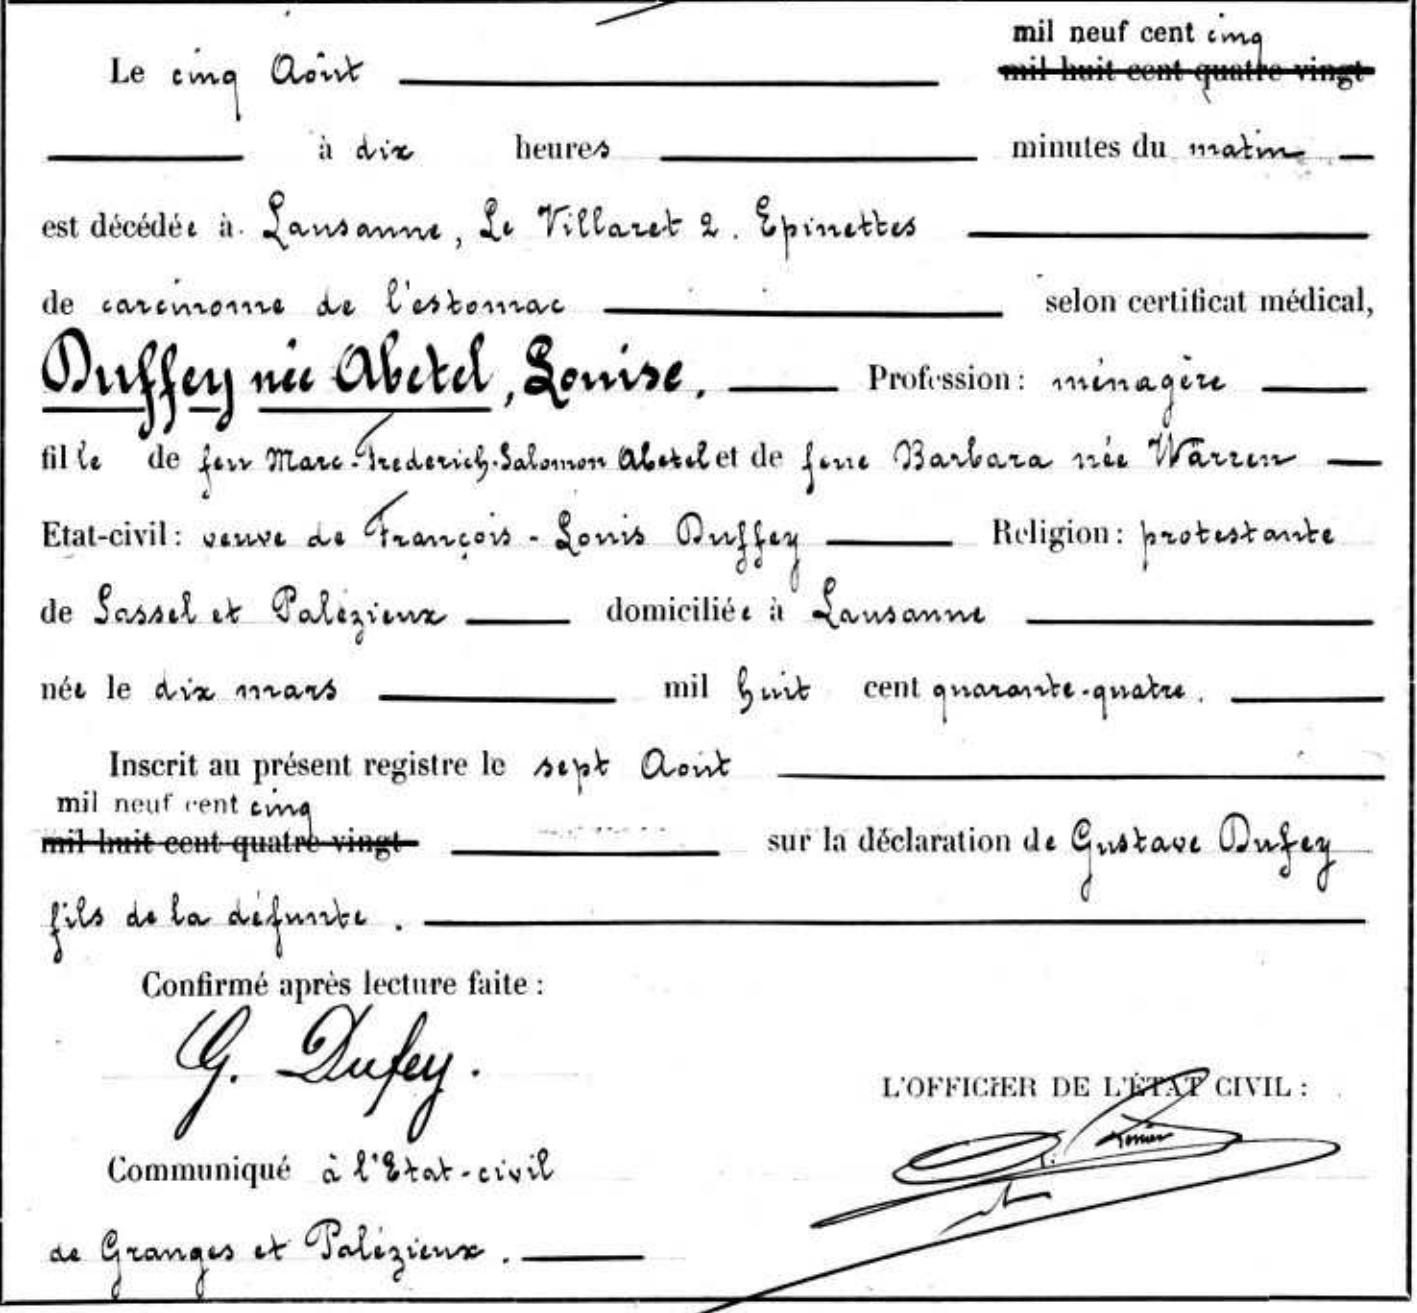 mil neuf cent cinq
Le cinq Août mil huit cent quatre vingt
à dix heures minutes du matin
est décédée à Lausanne, Le Villaret 2. Epinettes
de carcinome de l'estomac selon certificat médical,
Duffey née Abetel, Louise. Profession : ménagère
fille de feu Marc-Frederich-Salomon Abetel et de feue Barbara née Warren
Etat-civil : veuve de François-Louis Duffey Religion : protestante
de Sassel et Palézieux domiciliée à Lausanne
née le dix mars mil huit cent quarante-quatre.
Inscrit au présent registre le sept Août
mil neuf cent cinq
mil huit cent quatre vingt sur la déclaration de Gustave Dufey
fils de la défunte.
Confirmé après lecture faite :
G. Dufey.
L'OFFICIER DE L'ÉTAT CIVIL :
Communiqué à l'Etat-civil
de Granges et Palézieux.